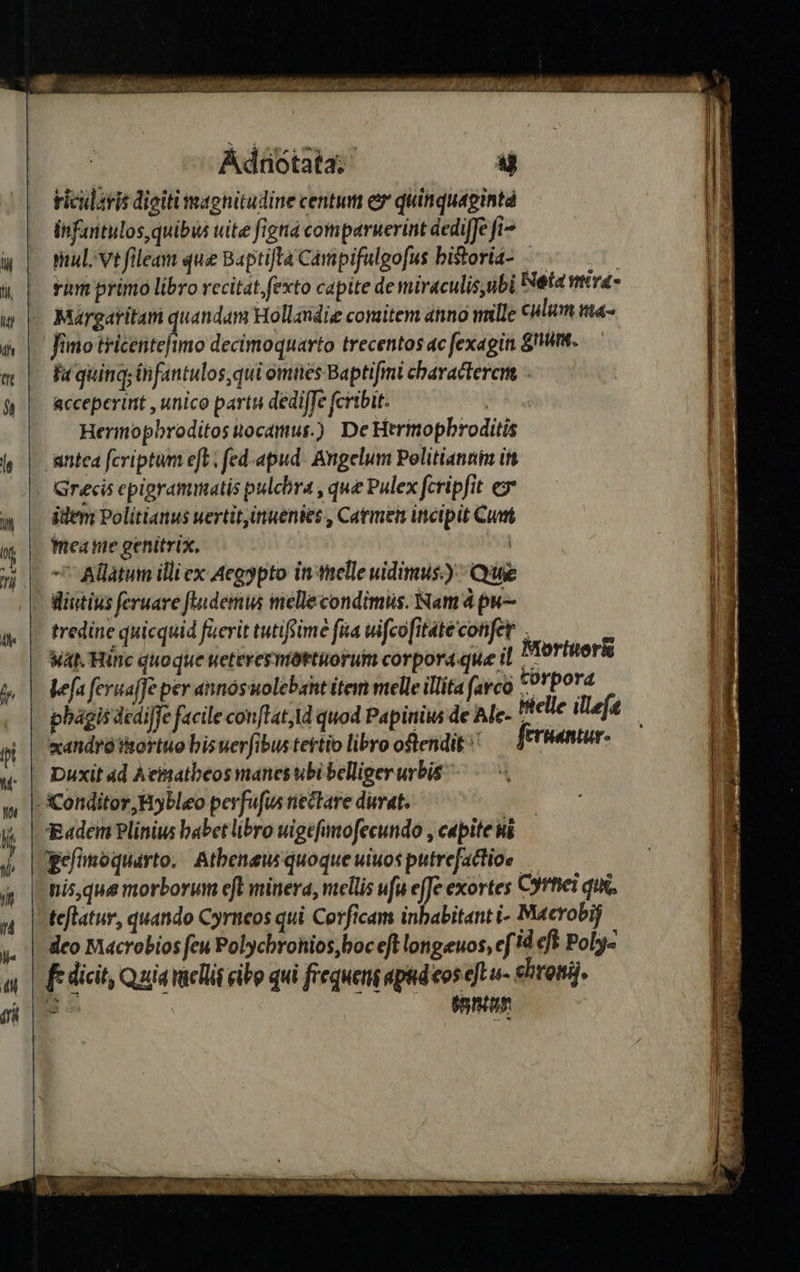 Adnotata. 43
ricularis digiti magnitudine centum & quinquaginta
infantulos,quibus uitæ signa comparuerint dedisse si-
mul. Vt sileam quæ Baptista Campifulgosus historia-
rum primo libro recitat,sexto capite de miraculis,ubi
Margaritam quandam Hollandiæ comitem anno mille
simo tricentesimo decimoquarto trecentos ac sexagin
ta quinq; infantulos,qui omnes Baptismi characterem
acceperint , unico partu dedisse scribit.
Nota mira-
culum ma-
gnum.
Hermophroditos uocamus.) De Hermophroditis
antea scriptum est , sed apud Angelum Politianum in
Græcis epigrammatis pulchra , quæ Pulex scripsit &
idem Politianus uertit,inuenies , Carmen incipit Cum
mea me genitrix.
Allatum illi ex Aegypto in melle uidimus.) Quæ
diutius seruare studemus melle condimus. Nam à pu-
tredine quicquid fuerit tutissime sua uiscositate conser
uat. Hinc quoque ueteres mortuorum corpora quæ il
læsa seruasse per annos uolebant item melle illita sarco
phagis dedisse facile constat,Id quod Papinius de Ale-
xandro mortuo bis uersibus tertio libro ostendit
Mortuorū
corpora
melle illæsa
seruantur.
Duxit ad Aematheos manes ubi belliger urbis
Conditor,Hyblæo perfusus nectare durat.
Eadem Plinius habet libro uigesimosecundo , capite ui
gesimoquarto. Athenæus quoque uiuos putrefactio-
nis,quæ morborum est minera, mellis usu esse exortes
testatur, quando Cyrneos qui Corsicam inhabitant i-
deo Macrobios seu Polychronios,hoc est longæuos, es
se dicit, Quia mellis cibo qui frequens apud eos est u-
Cyrnei qui,
Macrobij
id est Poly-
chronij.
tuntur